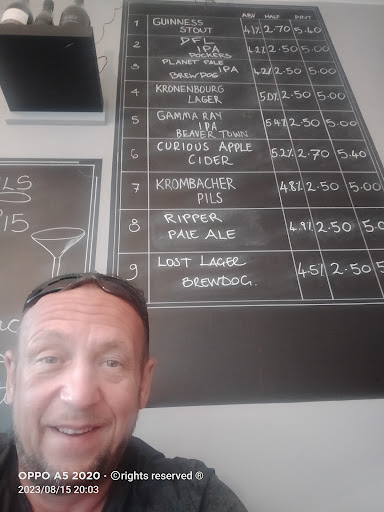 ABV HALF PINT
1 GUINNESS
STOUT 4.1% 2.70 5.40
2 DFL
IPA
DOCKERS 4.2% 2.50 5.00
3 PLANET PALE
IPA
BREWDOG 4.2% 2.50 5.00
4 KRONENBOURG
LAGER 5.0% 2.50 5.00
5 GAMMA RAY
IPA
BEAVER TOWN 5.4% 2.50 5.00
6 CURIOUS APPLE
CIDER 5.2% 2.70 5.40
7 KROMBACHER
PILS 4.8% 2.50 5.00
8 RIPPER
PALE ALE 4.9% 2.50 5.0
9 LOST LAGER
BREWDOG. 4.5% 2.50 5.
ILS
15
OPPO A5 2020 · ©rights reserved ®
2023/08/15 20:03